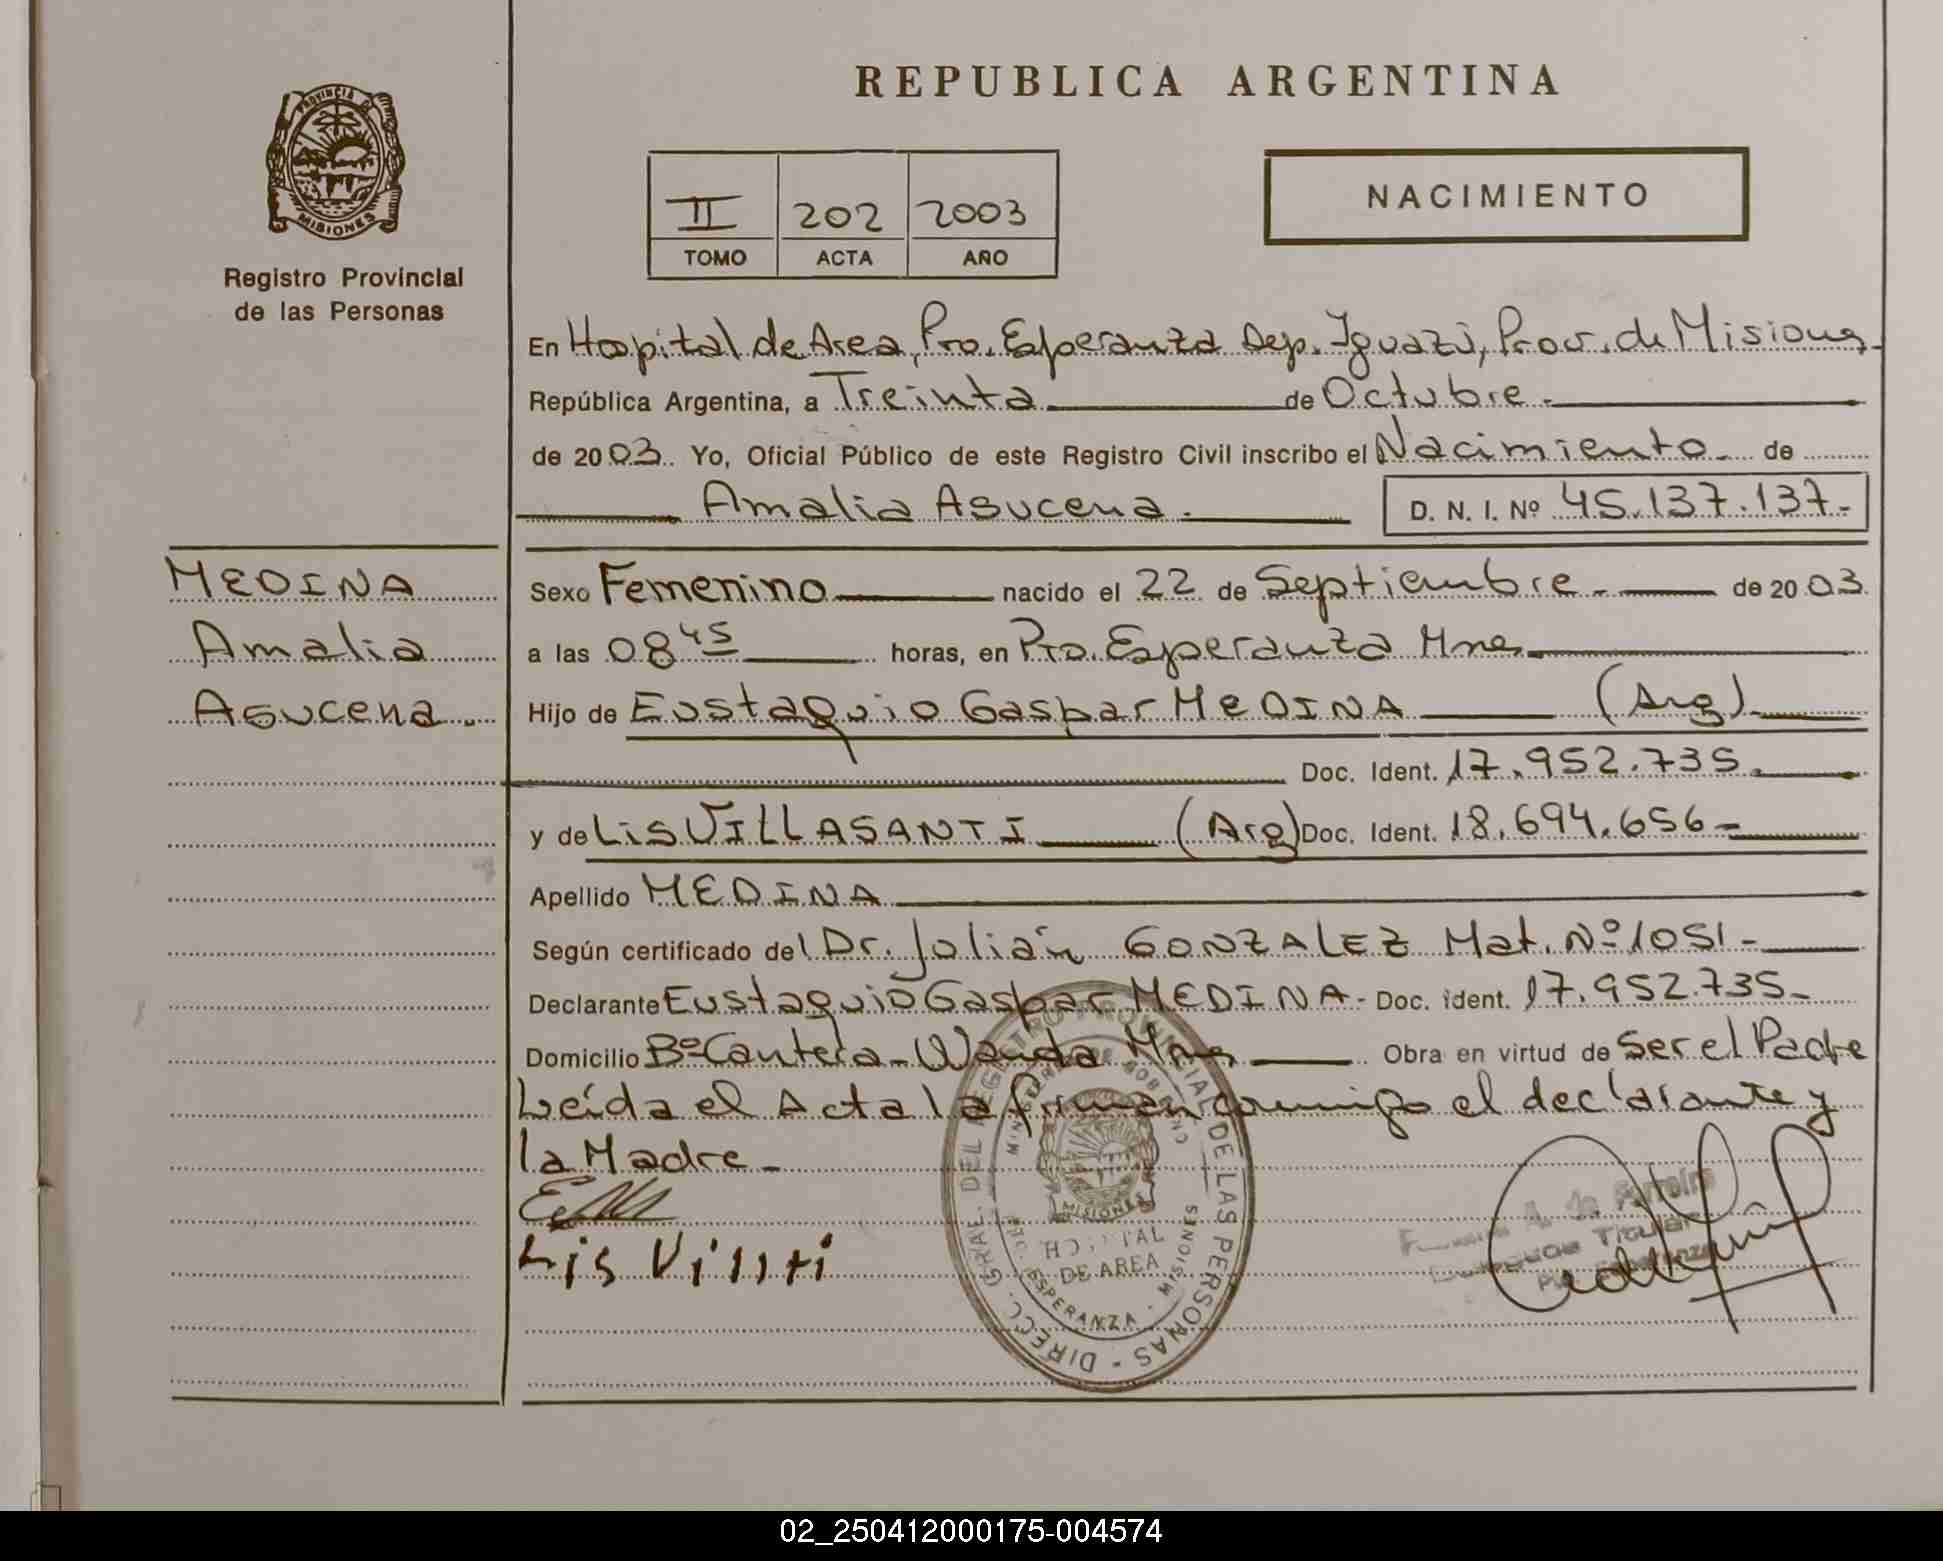 REPUBLICA ARGENTINA
PROVINCIA D
MISIONES
Registro Provincial
de las Personas
II 202 2003
TOMO ACTA AÑO
NACIMIENTO
En Hospital de Area, Pto. Esperanza Dep. Iguazú, Prov. de Misiones
República Argentina, a Treinta de Octubre.
de 2003. Yo, Oficial Público de este Registro Civil inscribo el Nacimiento de
Amalia Asucena. D. N. I. Nº 45.137.137.-
MEDINA
Amalia
Asucena.
Sexo Femenino nacido el 22 de Septiembre. de 2003
a las 08 45 horas, en Pto. Esperanza Mnes.
Hijo de Eustaquio Gaspar MEDINA (Arg)
Doc. Ident. 17.952.735.
y de Lis VILLASANTI (Arg) Doc. Ident. 18.694.656-
Apellido MEDINA
Según certificado del Dr. Julián GONZALEZ Mat. Nº 1051-
Declarante Eustaquio Gaspar MEDINA- Doc. ident. 17.952.735-
Domicilio Bº Cantera- Wanda Mnes Obra en virtud de Ser el Padre
Leída el Acta la firman conmigo el declarante y
la Madre-
Lis Villsti
DIRECC. GRAL. DEL REGISTRO PROVINCIAL DE LAS PERSONAS
MISIONES
HOSPITAL
DE AREA
ESPERANZA - MISIONES
02_250412000175-004574